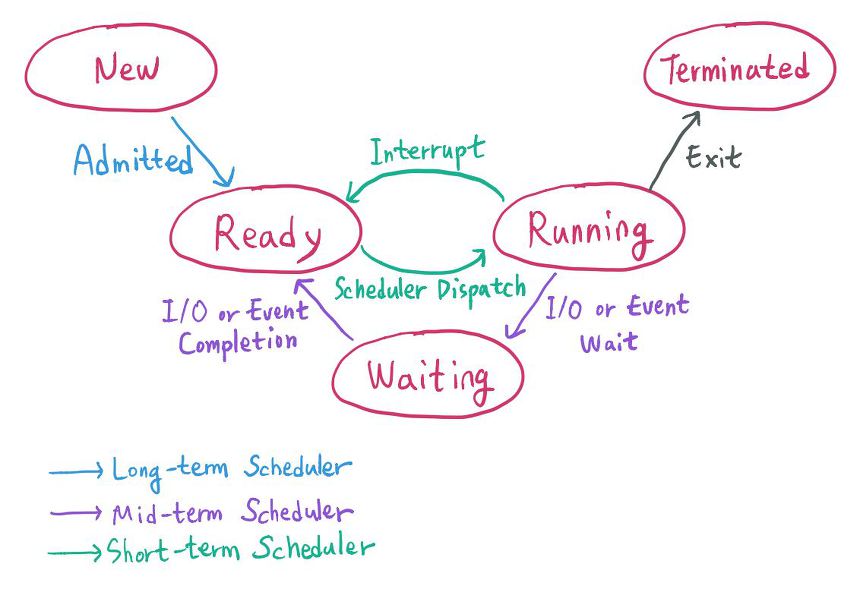 New
Terminated
Admitted
Interrupt
Exit
Ready
Running
Scheduler Dispatch
I/O or Event
Completion
I/O or Event
Wait
Waiting
Long-term Scheduler
Mid-term Scheduler
Short-term Scheduler